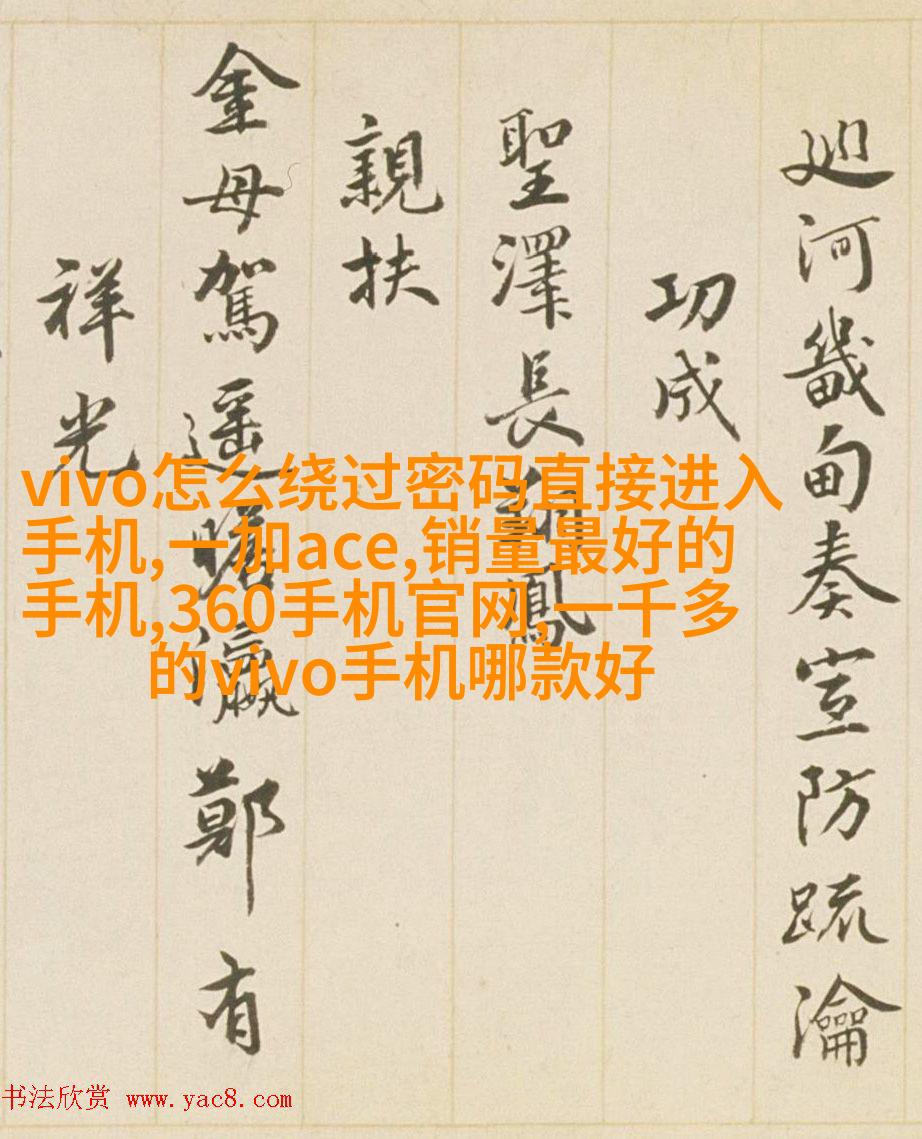 廵河畿甸奏宣防疏瀹
功成
聖澤長翔鳳
親扶
金母駕遥瞻瀛鄭有
祥光
vivo怎么绕过密码直接进入
手机,一加ace,销量最好的
手机,360手机官网,一千多
的vivo手机哪款好
书法欣赏 www.yac8.com